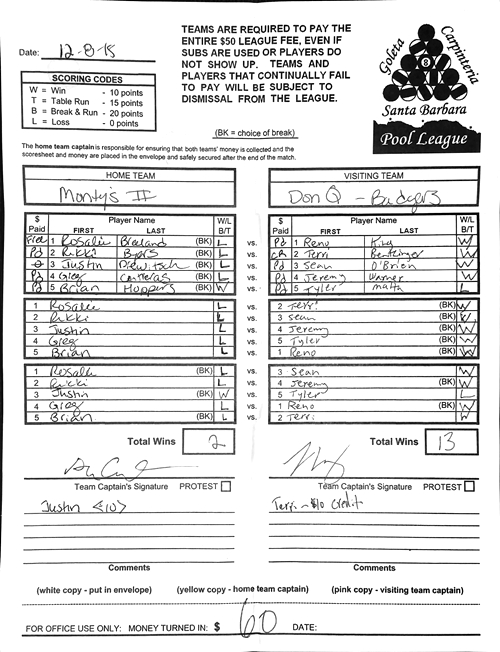 Date: 12-8-15
TEAMS ARE REQUIRED TO PAY THE
ENTIRE $50 LEAGUE FEE, EVEN IF
SUBS ARE USED OR PLAYERS DO
NOT SHOW UP. TEAMS AND
PLAYERS THAT CONTINUALLY FAIL
TO PAY WILL BE SUBJECT TO
DISMISSAL FROM THE LEAGUE.
Goleta Carpinteria
8
Santa Barbara
Pool League
SCORING CODES
W = Win - 10 points
T = Table Run - 15 points
B = Break & Run - 20 points
L = Loss - 0 points
(BK = choice of break)
The home team captain is responsible for ensuring that both teams' money is collected and the
scoresheet and money are placed in the envelope and safely secured after the end of the match.
HOME TEAM
Monty's II
$ Paid Player Name FIRST LAST W/L B/T
1 Rosalie Breland (BK) L vs.
Pd 2 Rikki Byers (BK) L vs.
3 Justin (BK) L vs.
Pd 4 Greg Contreras (BK) L vs.
Pd 5 Brian Hoppers (BK) W vs.
1 Rosalie L vs.
2 Rikki L vs.
3 Justin L vs.
4 Greg L vs.
5 Brian L vs.
1 Rosalie (BK) L vs.
2 Rikki L vs.
3 Justin (BK) W vs.
4 Greg L vs.
5 Brian (BK) L vs.
Total Wins 2
VISITING TEAM
Don Q - Badgers
$ Paid Player Name FIRST LAST W/L B/T
Pd 1 Reno W
2 Terri Bentzinger W
Pd 3 Sean O'Brien W
Pd 4 Jeremy Warner W
Pd 5 Tyler L
2 Terri (BK) W
3 Sean (BK) W
4 Jeremy (BK) W
5 Tyler (BK) W
1 Reno (BK) W
3 Sean W
4 Jeremy (BK) W
5 Tyler L
1 Reno (BK) W
2 Terri W
Total Wins 13
Team Captain's Signature PROTEST
Justin <10>
Comments
Team Captain's Signature PROTEST
Terri - $10 credit
Comments
(white copy - put in envelope) (yellow copy - home team captain) (pink copy - visiting team captain)
FOR OFFICE USE ONLY: MONEY TURNED IN: $ 60 DATE: